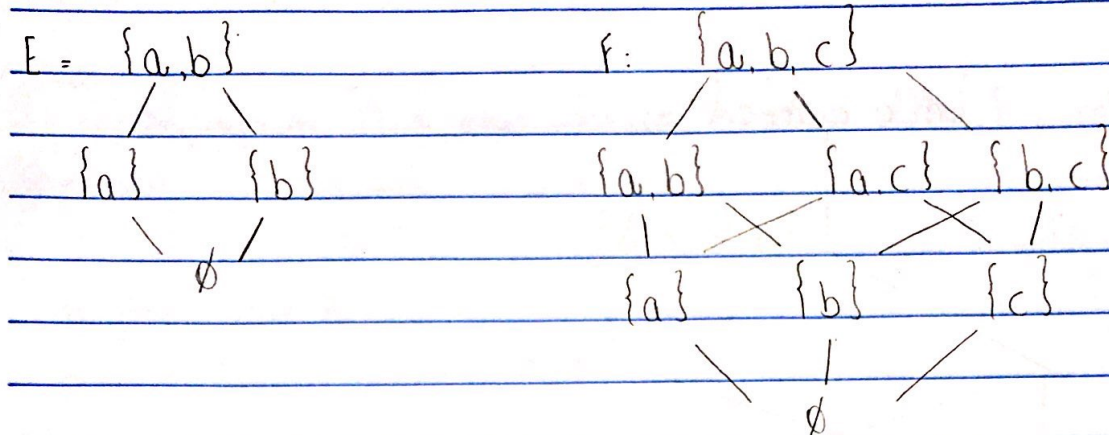 E = {a,b} F: {a,b,c}
{a} {b} {a,b} {a,c} {b,c}
∅ {a} {b} {c}
∅